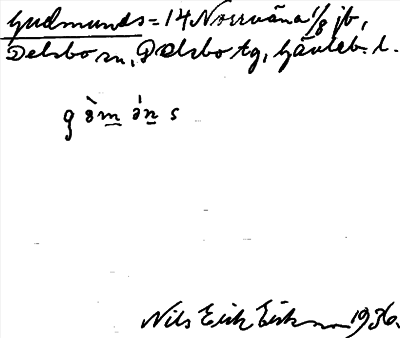 Gudmunds = 14 Norrväna 1/8 jb,
Delsbo sn, Delsbo tg, Gävleb. l.
Nils Erik Eriksson 1936.